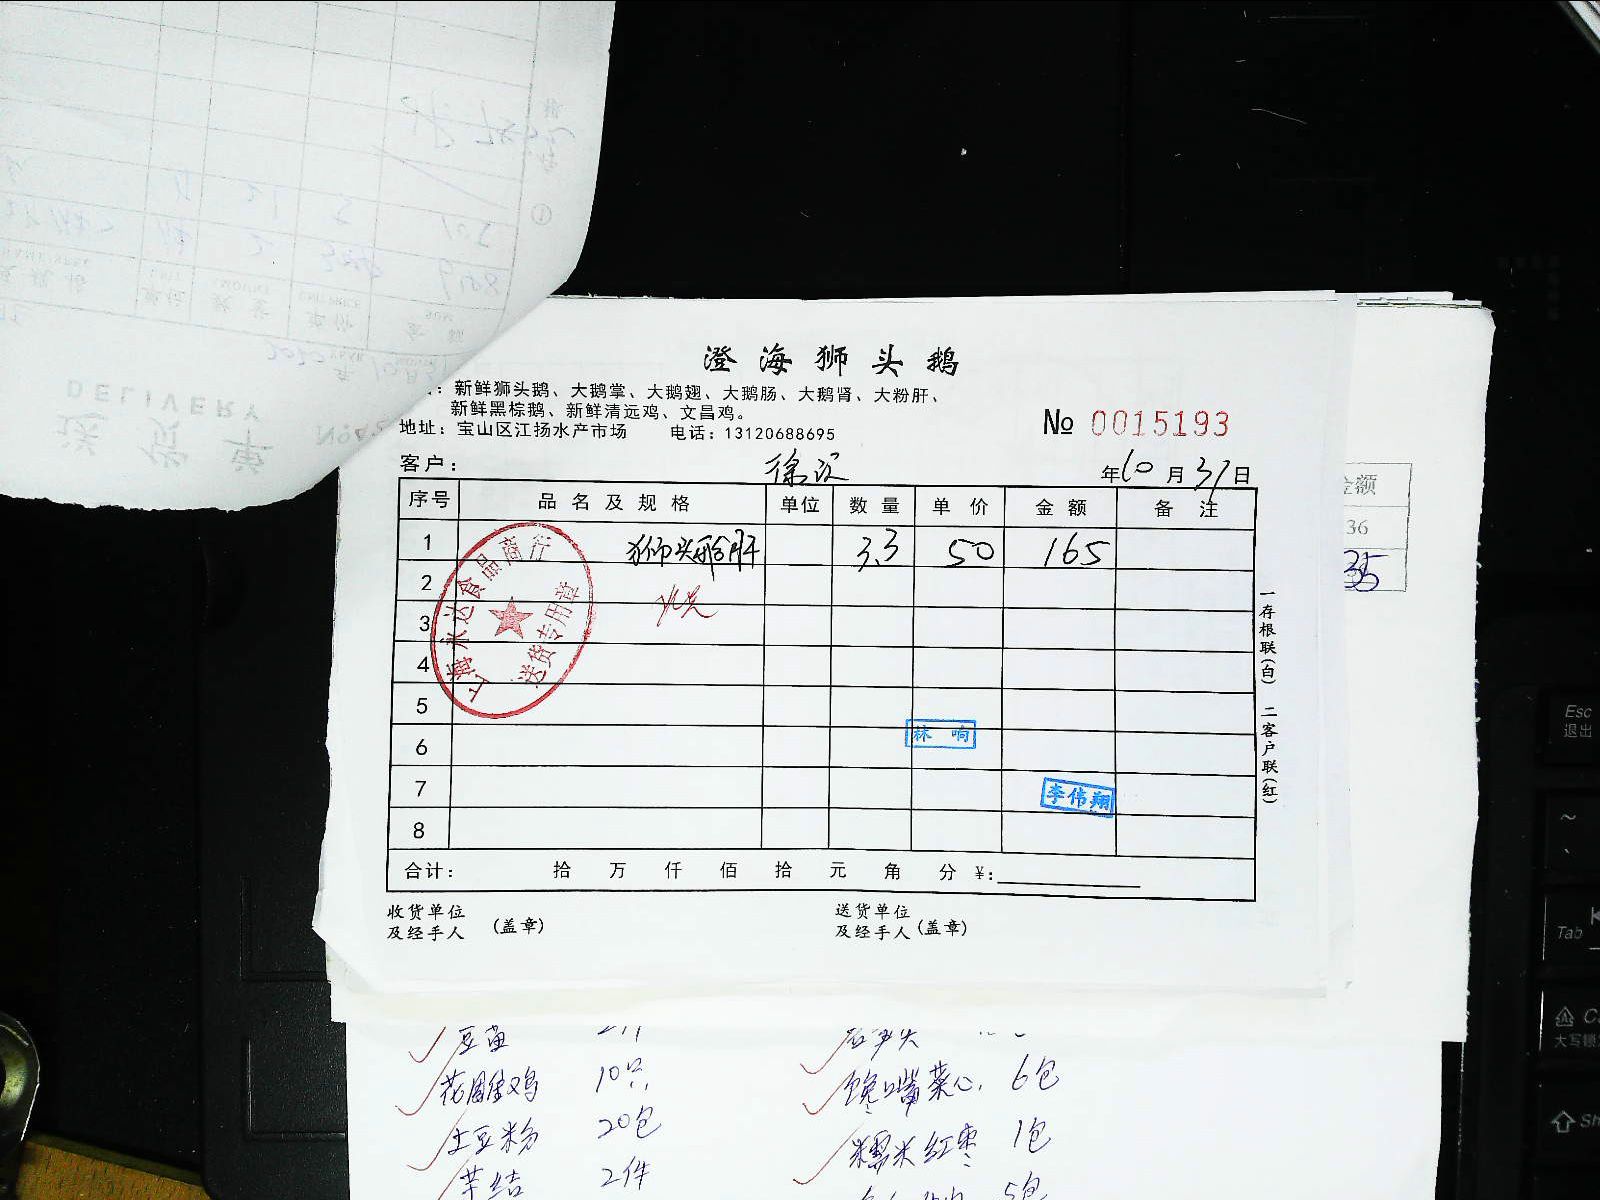 澄海狮头鹅
：新鲜狮头鹅、大鹅掌、大鹅翅、大鹅肠、大鹅肾、大粉肝、
新鲜黑棕鹅、新鲜清远鸡、文昌鸡。
地址：宝山区江扬水产市场 电话：13120688695
№ 0015193
客户： 年10月31日
序号 品名及规格 单位 数量 单价 金额 备注
1 狮头鹅肝 3.3 50 165
2
3
4
5
6
7
8
上海永达食品商行
送货专用章
林响
李伟翔
合计： 拾 万 仟 佰 拾 元 角 分 ¥：
收货单位及经手人 （盖章） 送货单位及经手人（盖章）
一存根联（白） 二客户联（红）
金额
36
35
DELIVERY
送货单
豆苗
花雕鸡 10只
土豆粉 20包
芋结 2件
馋嘴菜心 6包
糯米红枣 1包
5包
Esc
退出
Tab
大写锁